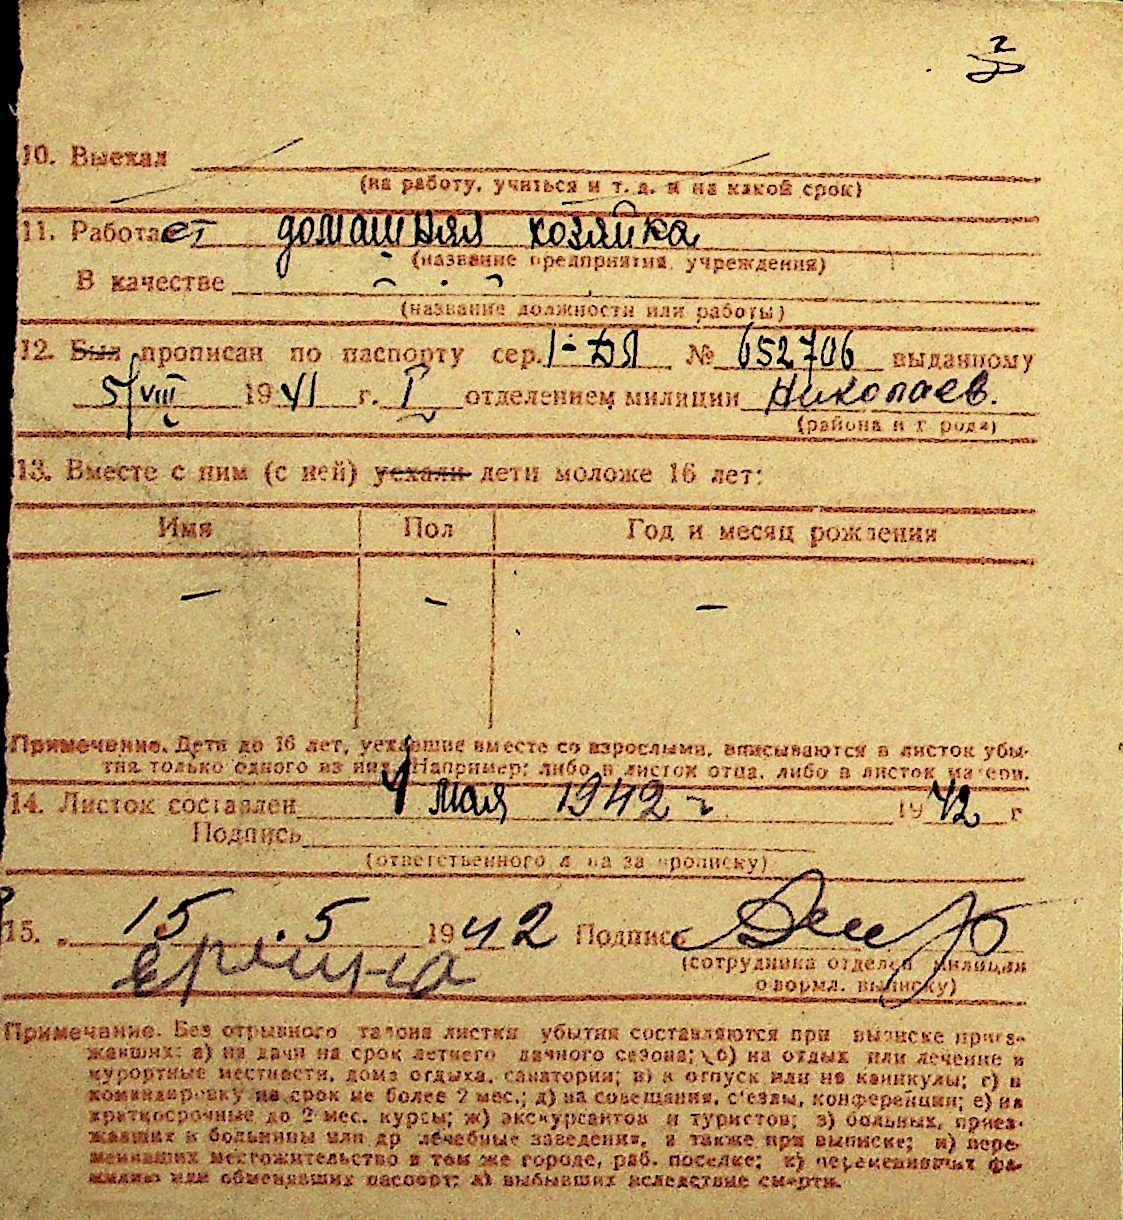 10. Выехал
(на работу, учиться и т. д. и на какой срок)
11. Работает домашняя хозяйка
(название предприятия, учреждения)
В качестве
(название должности или работы)
12. Был прописан по паспорту сер. I-ДЯ № 652706 выданному
5/VIII 1941 г. I отделением милиции Николаев.
(района и города)
13. Вместе с ним (с ней) уехали дети моложе 16 лет:
Имя Пол Год и месяц рождения
— — —
Примечание. Дети до 16 лет, уехавшие вместе со взрослыми, вписываются в листок убы-
тия только одного из них. Например: либо в листок отца, либо в листок матери.
14. Листок составлен 4 мая 1942 г 1942 г
Подпись
(ответственного лица за прописку)
15. „ 15.5 1942 Подпись
(сотрудника отделен. милиции
оформл. выписку)
Примечание. Без отрывного талона листки убытия составляются при выписке приез-
жавших: а) на дачи на срок летнего дачного сезона; б) на отдых или лечение в
курортные местности, дома отдыха, санатории; в) в отпуск или на каникулы; г) в
командировку на срок не более 2 мес.; д) на совещания, с'езды, конференции; е) на
краткосрочные до 2 мес. курсы; ж) экскурсантов и туристов; з) больных, приез-
жавших в больницы или др лечебные заведения, а также при выписке; и) пере-
менивших местожительство в том же городе, раб. поселке; к) переменивших фа-
милию или обменявших паспорт; л) выбывших вследствие смерти.